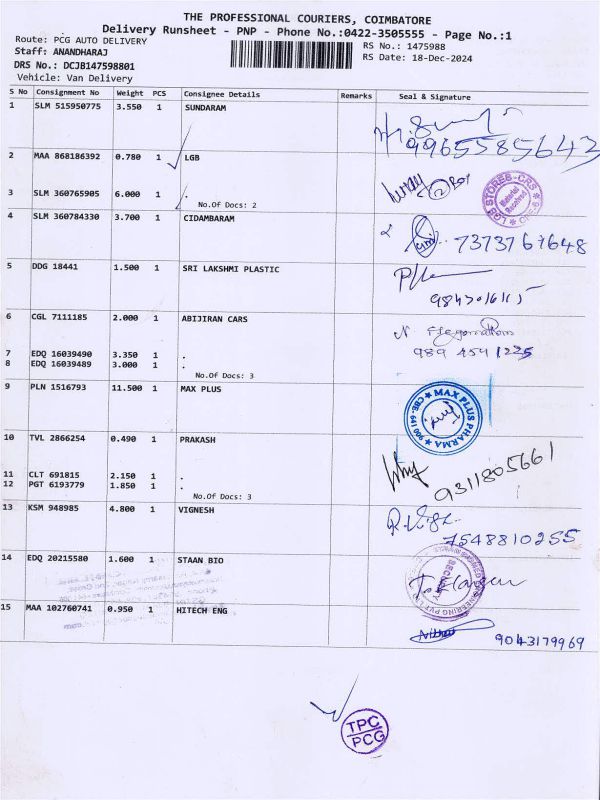 THE PROFESSIONAL COURIERS, COIMBATORE
Delivery Runsheet - PNP - Phone No.:0422-3505555 - Page No.:1
Route: PCG AUTO DELIVERY
Staff: ANANDHARAJ
DRS No.: DCJB147598801
Vehicle: Van Delivery
RS No.: 1475988
RS Date: 18-Dec-2024
S No Consignment No Weight PCS Consignee Details Remarks Seal & Signature
1 SLM 515950775 3.550 1 SUNDARAM
9965585643
2 MAA 868186392 0.780 1 LGB
LGB STORES-CRS
Material Received
3 SLM 360765905 6.000 1 .
No.Of Docs: 2
4 SLM 360784330 3.700 1 CIDAMBARAM
7373767648
5 DDG 18441 1.500 1 SRI LAKSHMI PLASTIC
6 CGL 7111185 2.000 1 ABIJIRAN CARS
989 4541 225
7 EDQ 16039490 3.350 1 .
8 EDQ 16039489 3.000 1 .
No.Of Docs: 3
9 PLN 1516793 11.500 1 MAX PLUS
MAX PLUS PHARMA
CBE- 641 006
10 TVL 2866254 0.490 1 PRAKASH
9311805661
11 CLT 691815 2.150 1 .
12 PGT 6193779 1.850 1 .
No.Of Docs: 3
13 KSM 948985 4.800 1 VIGNESH
7548810255
14 EDQ 20215580 1.600 1 STAAN BIO
15 MAA 102760741 0.950 1 HITECH ENG
9043179969
TPC
PCG